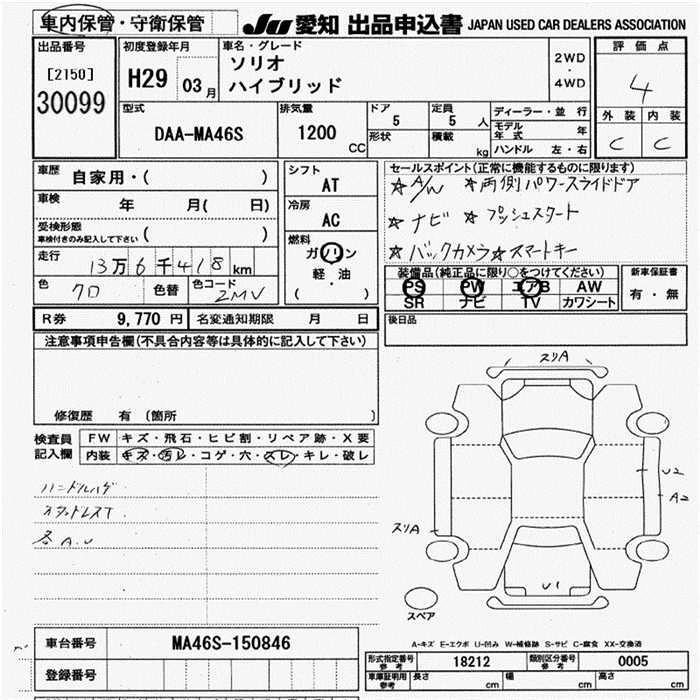 車内保管・守衛保管
JU 愛知 出品申込書 JAPAN USED CAR DEALERS ASSOCIATION
出品番号
[2150]
30099
初度登録年月
H29 03月
車名・グレード
ソリオ
ハイブリッド
2WD
・
4WD
評価点
4
外装 内装
C C
型式
DAA-MA46S
排気量
1200 CC
ドア
5
形状
定員
5 人
積載
kg
ディーラー・並行
モデル年式 年
ハンドル 左・右
車歴
自家用・( )
車検
年 月( 日)
受検形態
車検付きのみ記入して下さい ( )
走行
13万6千418km
色
クロ
色替
色コード
ZMV
シフト
AT
冷房
AC
燃料
ガソリン
軽・油
( )
セールスポイント(正常に機能するものに限ります)
☆A/W ☆両側パワースライドドア
☆ナビ ☆プッシュスタート
☆バックカメラ☆スマートキー
装備品(純正品に限り○をつけてください)
PS PW エアB AW
SR ナビ TV カワシート
新車保証書
有・無
R券 9,770円
名変通知期限 月 日
後日品
注意事項申告欄(不具合内容等は具体的に記入して下さい)
修復歴 有 (箇所 )
検査員記入欄
FW キズ・飛石・ヒビ割・リペア跡・X要
内装 キズ・汚レ・コゲ・穴・スレ・キレ・破レ
ハンドルハゲ
スタッドレスT
各A.U
スリA
U2
A2
スリA
U1
スペア
A-キズ E-エクボ U-凹み W-補修跡 S-サビ C-腐食 XX-交換済
車台番号
MA46S-150846
登録番号
形式指定番号
参考
18212
類別区分番号
参考
0005
車庫証明用
参考
長さ cm
幅 cm
高さ cm